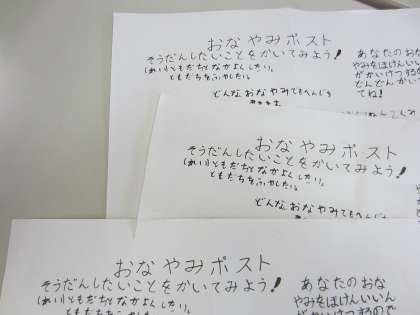 おなやみポスト
そうだんしたいことをかいてみよう!
(れい)ともだちとなかよくしたい。
ともだちをふやしたい。
どんなおなやみでもへんじを
あなたのおな
やみをほけんいいん
がかいけつするので
どんどんかいて
てね!
おなやみポスト
そうだんしたいことをかいてみよう!
(れい)ともだちとなかよくしたい。
ともだちをふやしたい。
どんなおなやみでもへんじを
おなやみポスト
そうだんしたいことをかいてみよう!
(れい)ともだちとなかよくしたい。
ともだちをふやしたい。
あなたのおな
やみをほけんいいん
がかいけつするので